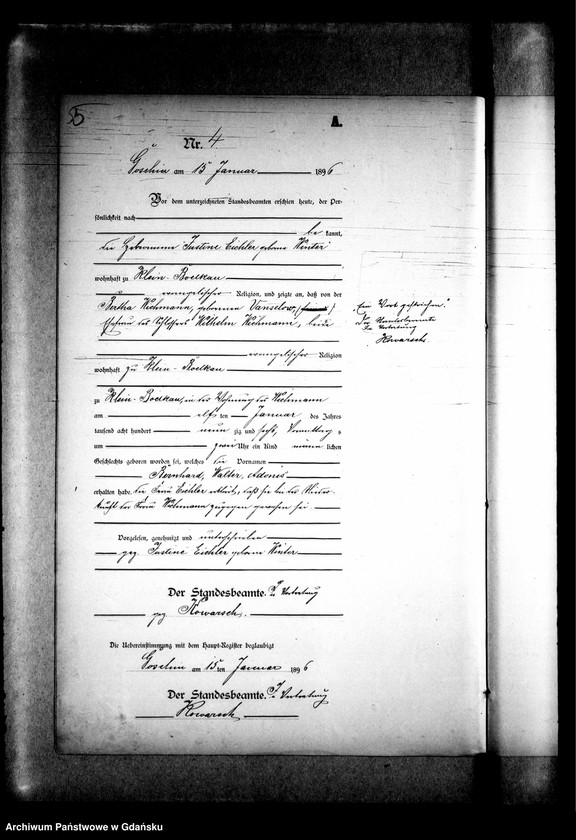 55
A.
Nr. 4
Goschin am 15 Januar 1896
Vor dem unterzeichneten Standesbeamten erschien heute, der Per-
sönlichkeit nach
be kannt,
die Hebeamme Justine Eichler geborne Winter
wohnhaft zu Klein-Boelkau
evangelischer Religion, und zeigte an, daß von der
Bertha Wichmann, geborenen Vanselow,
Ehefrau des Schlossers Wilhelm Wichmann, beide
Ein Wort gestrichen.
Der Standesbeamte
In Vertretung
Kowarsch.
evangelischer Religion
wohnhaft zu Klein-Boelkau
zu Klein-Boelkau, in der Wohnung des Wichmann
am elften Januar des Jahres
tausend acht hundert neun zig und sechs, Vormittag s
um zwei Uhr ein Kind männ lichen
Geschlechts geboren worden sei, welches die Vornamen
Bernhard, Walter, Adonis
erhalten habe. Die Frau Eichler erklärt, daß sie bei der Nieder-
kunft der Frau Wichmann zugegen gewesen sei.
Vorgelesen, genehmigt und unterschrieben
gez. Justine Eichler geborne Winter
Der Standesbeamte. In Vertretung
gez Kowarsch.
Die Uebereinstimmung mit dem Haupt-Register beglaubigt
Goschin am 15 ten Januar 1896
Der Standesbeamte. In Vertretung
Kowarsch
Archiwum Państwowe w Gdańsku